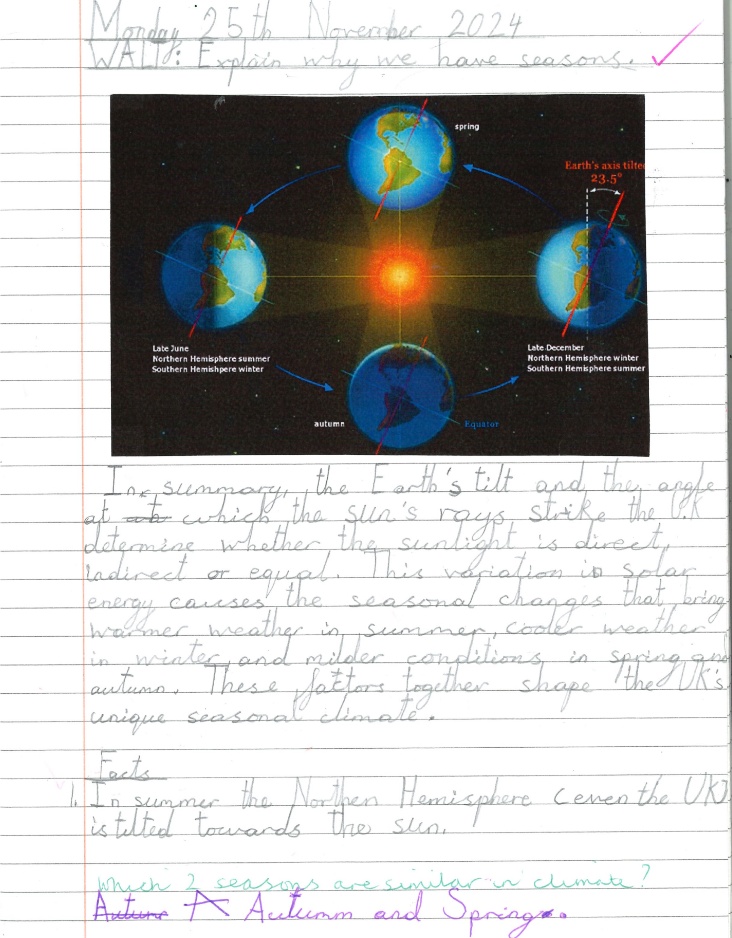 Monday 25th November 2024
WALT: Explain why we have seasons.
spring
Earth's axis tilted
23.5°
Late June
Northern Hemisphere summer
Southern Hemishpere winter
Late December
Northern Hemisphere winter
Southern Hemisphere summer
autumn
Equator
In summary, the Earth's tilt and the angle
at which the sun's rays strike the U.K
determine whether the sunlight is direct,
indirect or equal. This variation in solar
energy causes the seasonal changes that bring
warmer weather in summer, cooler weather
in winter, and milder conditions in spring and
autumn. These factors together shape the UK's
unique seasonal climate.
Facts
1. In summer the Northen Hemisphere (even the UK)
is tilted towards the sun.
Which 2 seasons are similar in climate?
Autumn A Autumm and Spring.